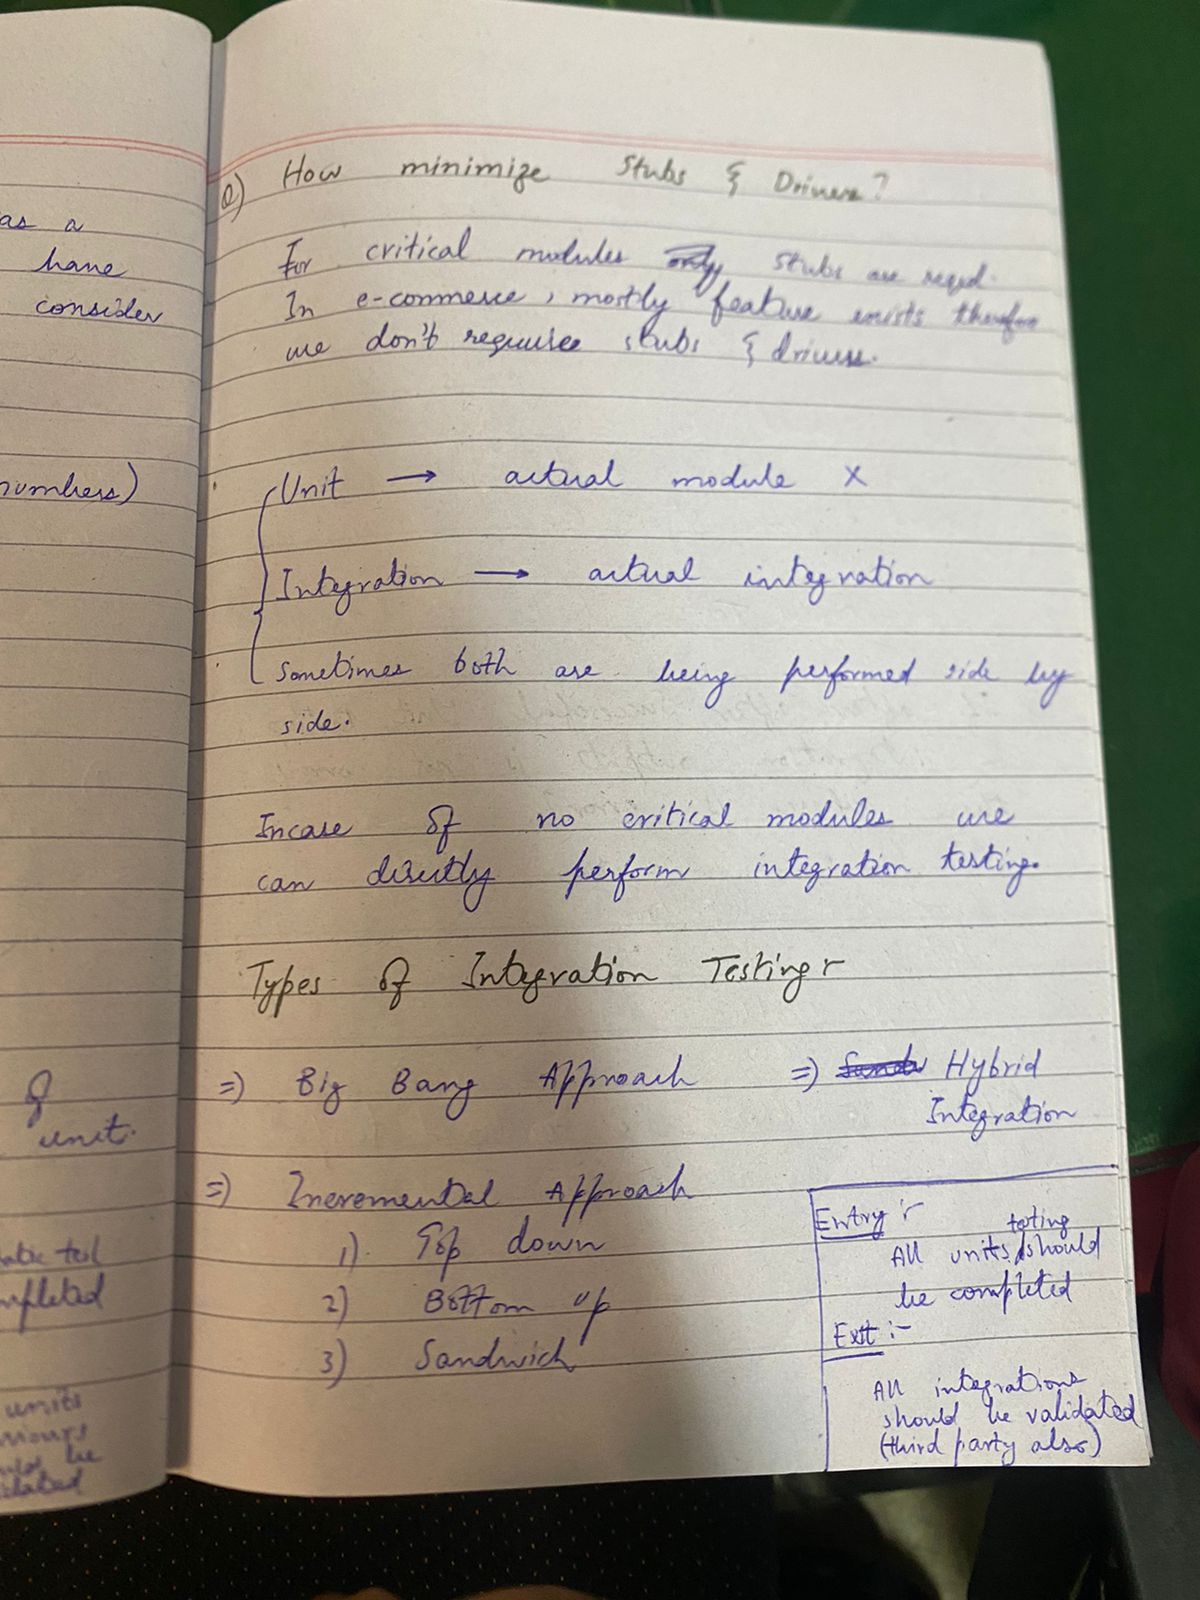 as a
have
consider
numbers)
of
unit.
test
completed
units
be
Q) How minimize Stubs & Drivers?
For critical modules stubs are reqd.
In e-commerce, mostly feature exists therefore
we don't require stubs & drivers.
Unit → actual module X
Integration → actual integration
Sometimes both are being performed side by
side.
Incase of no critical modules we
can directly perform integration testing.
Types of Integration Testing :-
=> Big Bang Approach => Hybrid
Integration
=> Incremental Approach
1) Top down
2) Bottom up
3) Sandwich
Entry :-
testing
All units should
be completed
Exit :-
All integrations
should be validated
(third party also)